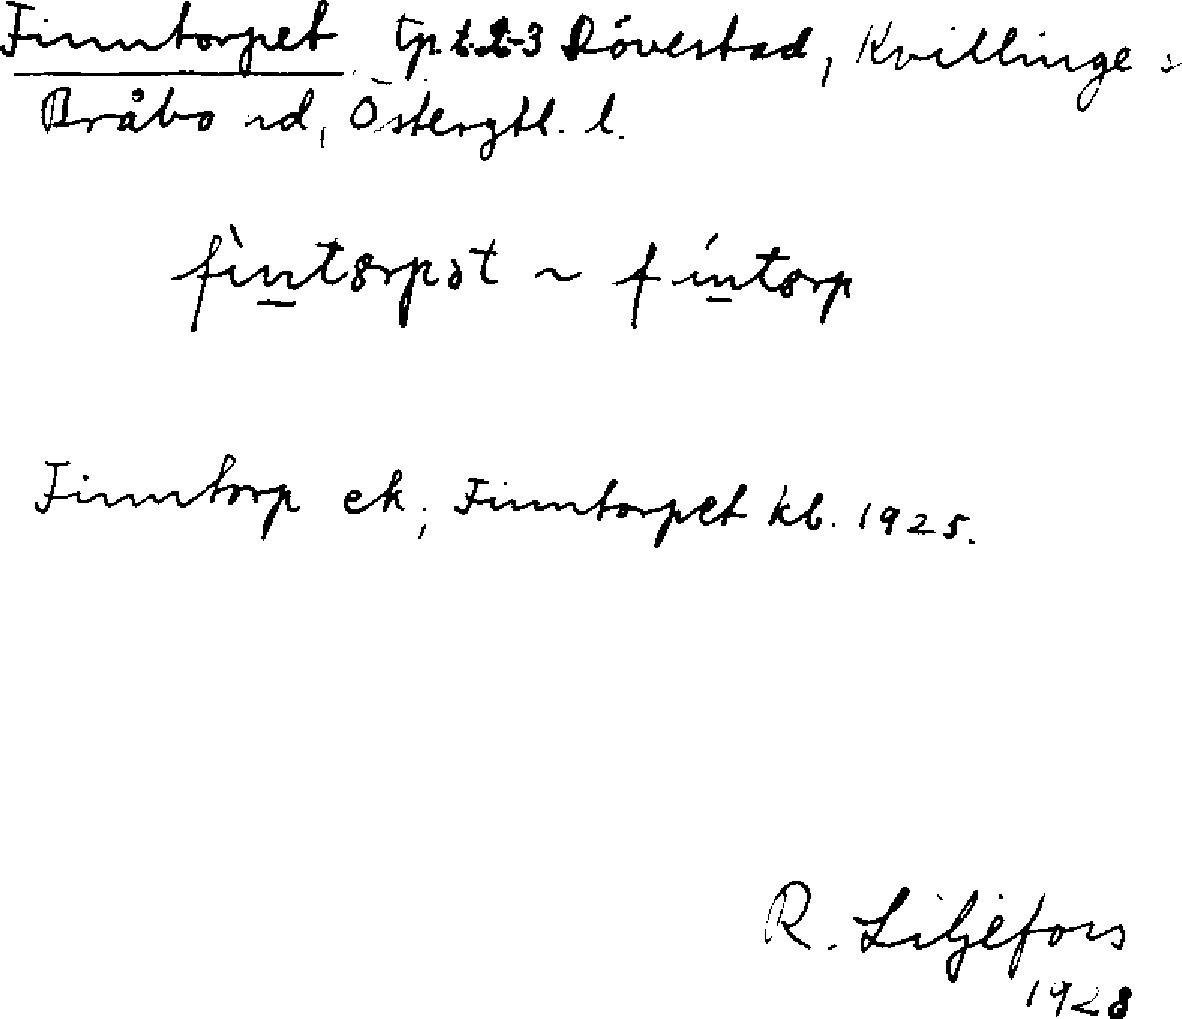 Finntorpet tp. t. 2-3 Rövestad, Kvillinge s
Bråbo hd, Östergtl. l.
fìntȣrpət ~ fíntȣrp
Finntorp ek; Finntorpet kb. 1925.
R. Liljefors
1928